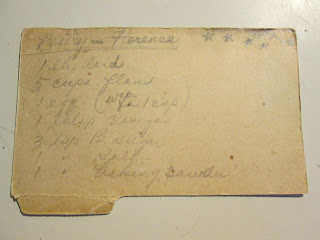 Pastry - Florence
1 lb. lard
5 cups flour
1 egg (in 1 cup)
1 tblsp Vinegar
3 tsp B. sugar
1 " Salt
1 " baking powder